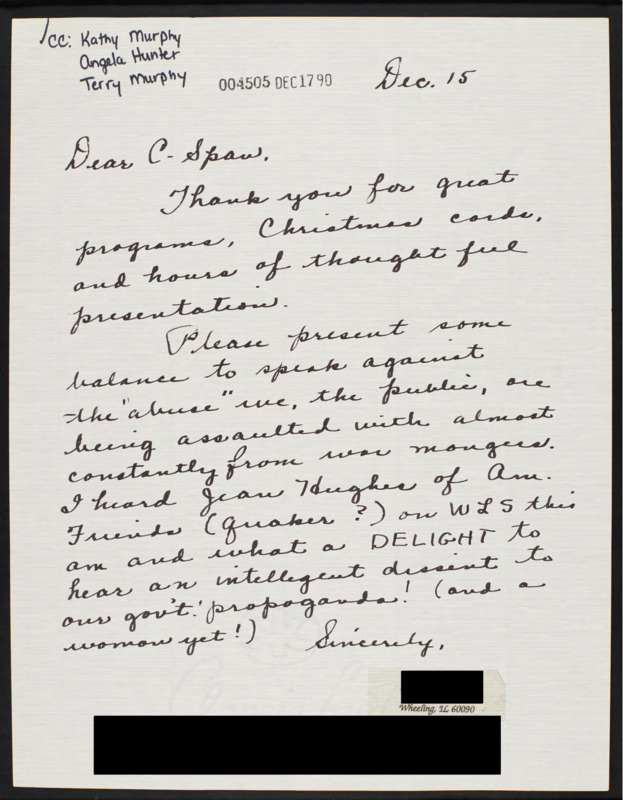 CC: Kathy Murphy
Angela Hunter
Terry Murphy
004505 DEC 17 90
Dec. 15
Dear C-Span,
Thank you for great
programs, Christmas cards,
and hours of thought full
presentation.
Please present some
balance to speak against
the "abuse" we, the public, are
being assaulted with almost
constantly from war mongers.
I heard Jean Hughes of Am.
Friends (Quaker?) on WLS this
am and what a DELIGHT to
hear an intellegent dissent to
our gov't.' propoganda! (and a
woman yet!)
Sincerely,
Wheeling, IL 60090